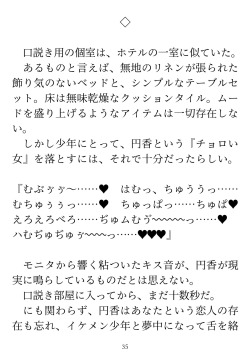 ◇
　口説き用の個室は、ホテルの一室に似ていた。
　あるものと言えば、無地のリネンが張られた
飾り気のないベッドと、シンプルなテーブルセ
ット。床は無味乾燥なクッションタイル。ムー
ドを盛り上げるようなアイテムは一切存在しな
い。
　しかし少年にとって、円香という『チョロい
女』を落とすには、それで十分だったらしい。
『むぶヶヶ～……♥　はむっ、ちゅううっ……
むちゅぅぅっ……♥　ちゅっぱっ……ちゅぱ♥
えろえろえろべろ……ぢゅムむぅ～～～～っ……♥
ハむぢゅぢゅヶ～～～っ……♥♥♥』
　モニタから響く粘ついたキス音が、円香が現
実に鳴らしているものだとは思えない。
　口説き部屋に入ってから、まだ十数秒だ。
　にも関わらず、円香はあなたという恋人の存
在も忘れ、イケメン少年と夢中になって舌を絡
35